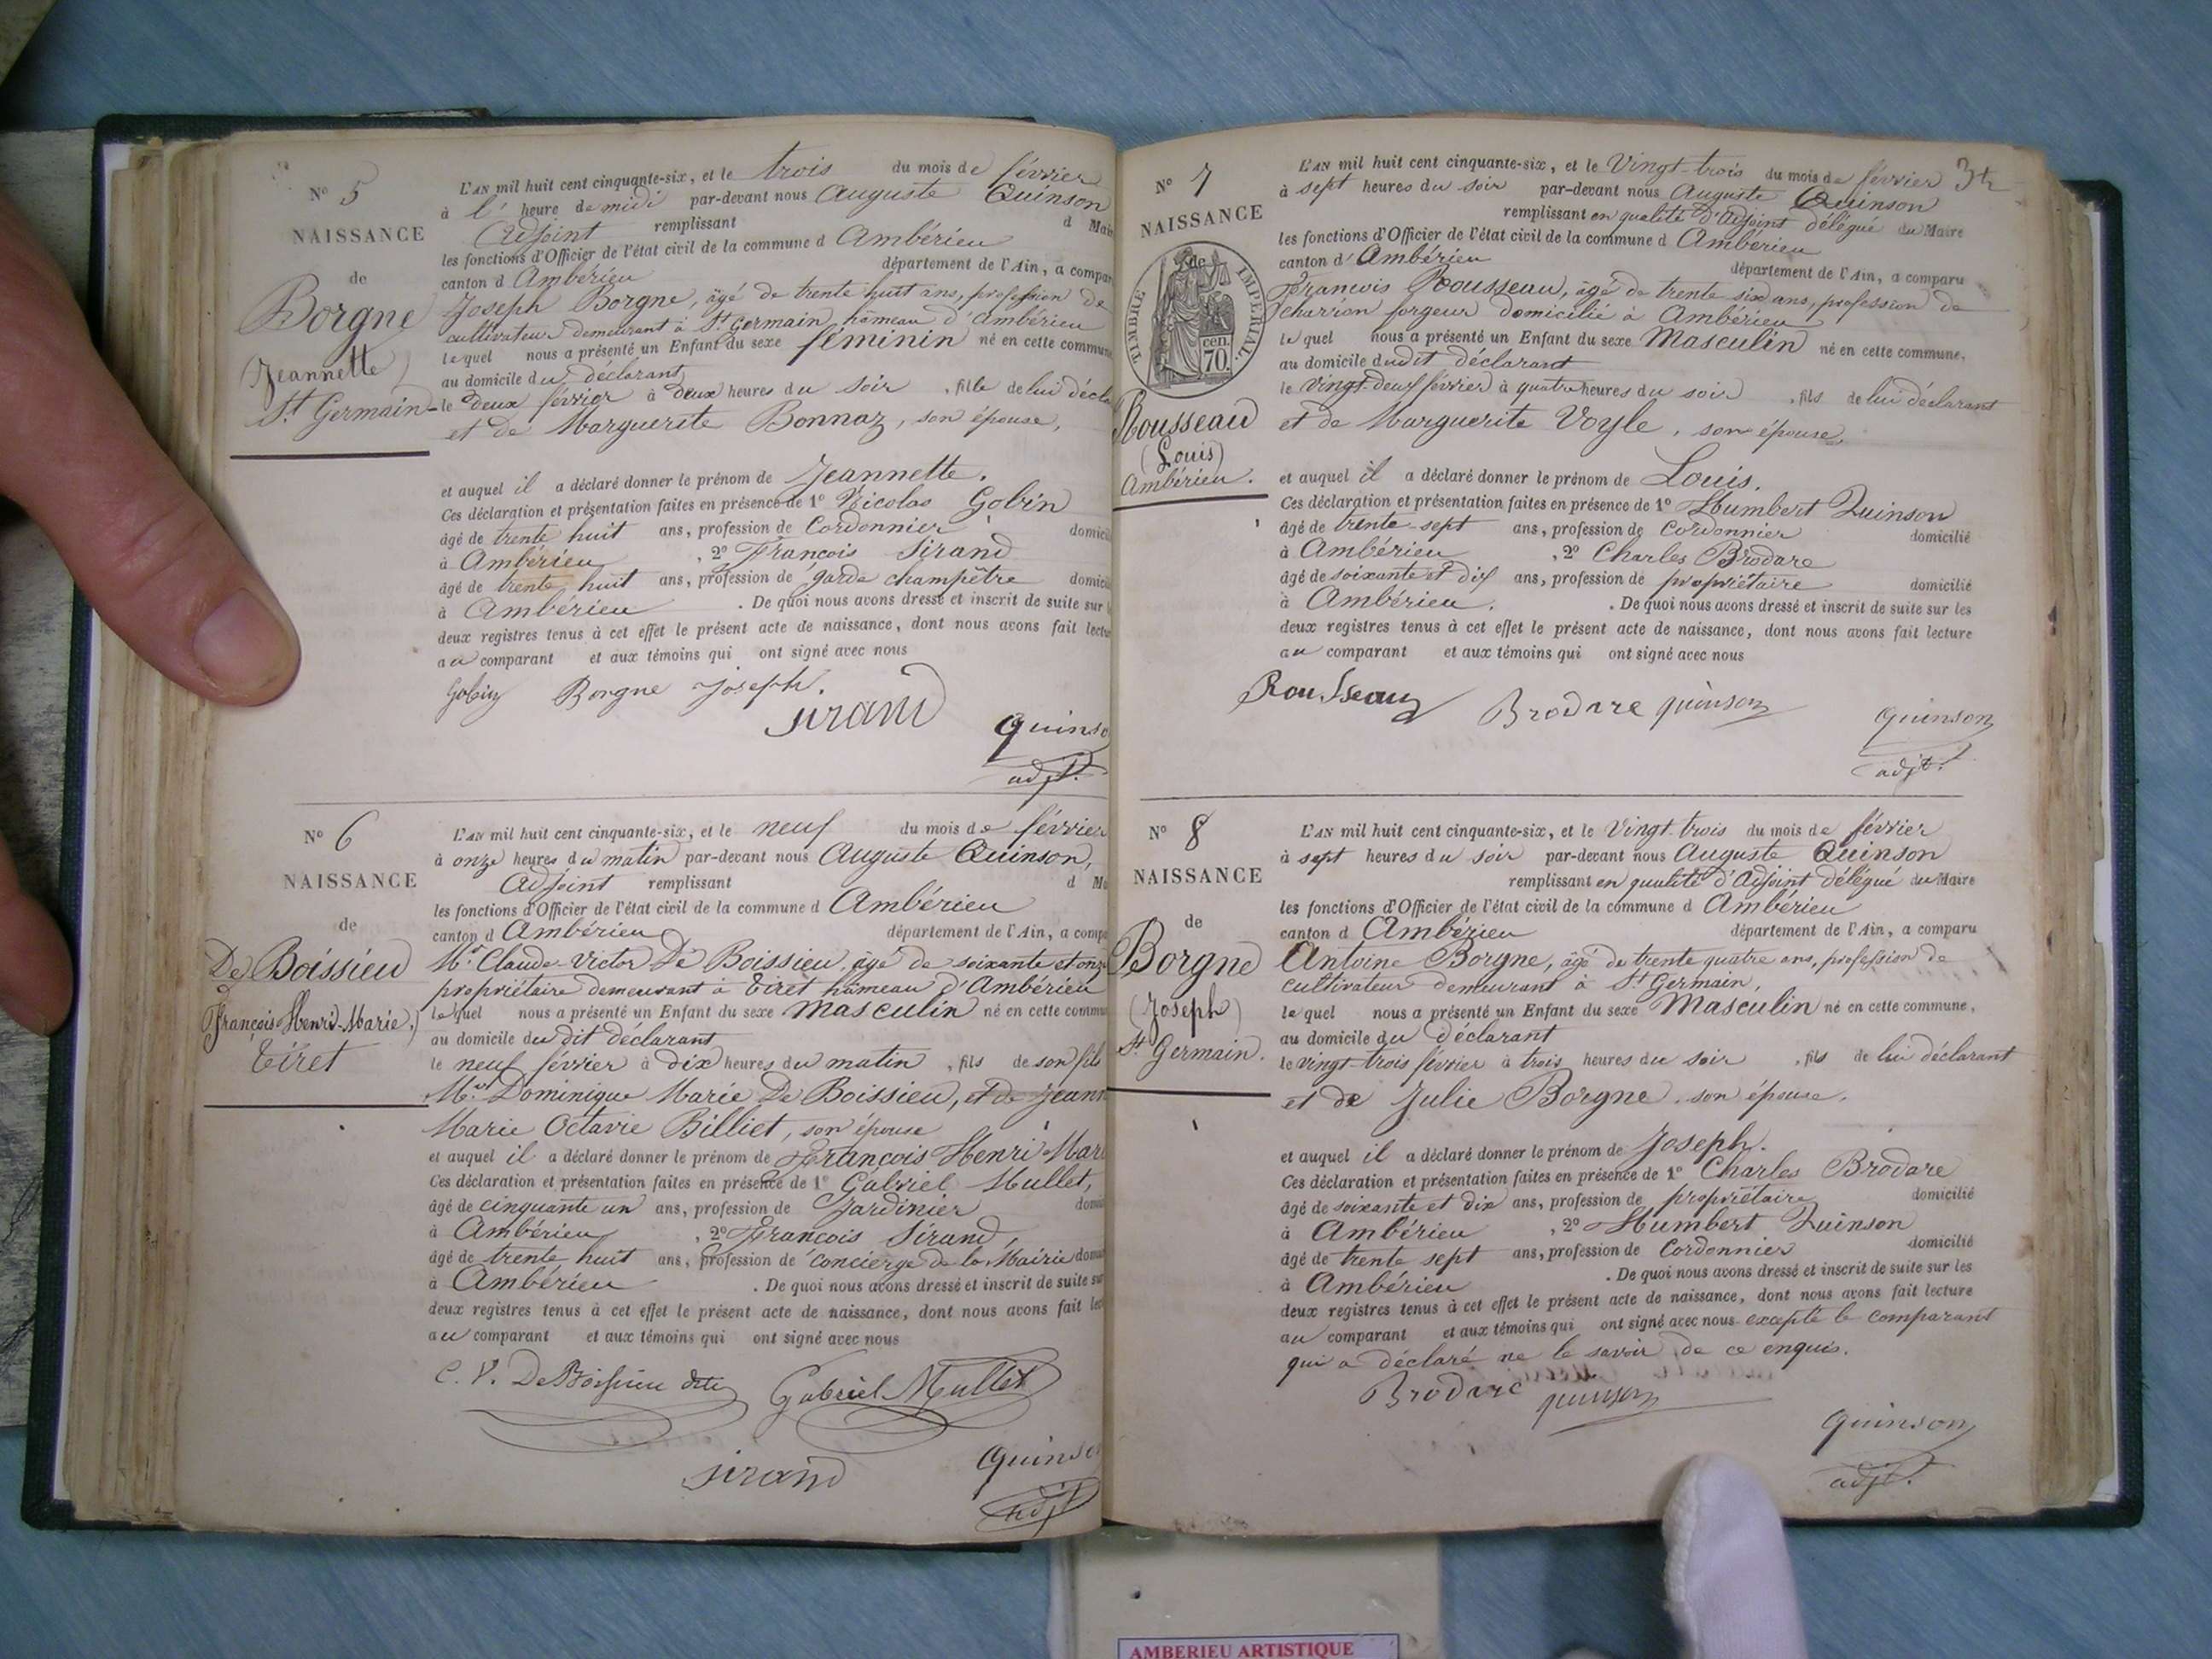 N° 5
NAISSANCE
de
Borgne
(Jeannette)
St Germain
L'AN mil huit cent cinquante-six, et le trois du mois de février
à l' heure de midi par-devant nous Auguste Quinson
Adjoint remplissant d Mair
les fonctions d'Officier de l'état civil de la commune d Ambérieu
canton d Ambérieu département de l'Ain, a compar
Joseph Borgne, âgé de trente huit ans, profession de
cultivateur demeurant à St Germain, hâmeau d'Ambérieu
lequel nous a présenté un Enfant du sexe féminin né en cette commune
au domicile du déclarant
le deux février à deux heures du soir , fille de lui décla
et de Marguerite Bonnaz, son épouse,
et auquel il a déclaré donner le prénom de Jeannette.
Ces déclaration et présentation faites en présence de 1° Nicolas Gobin
âgé de trente huit ans, profession de Cordonnier domicil
à Ambérieu , 2° François Sirand
âgé de trente huit ans, profession de garde champêtre domicil
à Ambérieu . De quoi nous avons dressé et inscrit de suite sur l
deux registres tenus à cet effet le présent acte de naissance, dont nous avons fait lectur
au comparant et aux témoins qui ont signé avec nous
Gobin Borgne Joseph.
Sirand
quinso
adjt.
N° 6
NAISSANCE
de
De Boissieu
(François Henri-Marie.)
Tiret
L'AN mil huit cent cinquante-six, et le neuf du mois de février
à onze heures du matin par-devant nous Auguste Quinson,
Adjoint remplissant d Ma
les fonctions d'Officier de l'état civil de la commune d Ambérieu
canton d Ambérieu département de l'Ain, a compa
Mr Claude-Victor De Boissieu, âgé de soixante et onze
propriétaire demeurant à Tiret hâmeau d'Ambérieu
lequel nous a présenté un Enfant du sexe Masculin né en cette commu
au domicile du dit déclarant
le neuf février à dix heures du matin , fils de son fils
Mr Dominique Marie De Boissieu, et de Jeann
Marie Octavie Billiet, son épouse
et auquel il a déclaré donner le prénom de François Henri Mari
Ces déclaration et présentation faites en présence de 1° Gabriel Mullet,
âgé de cinquante un ans, profession de Jardinier domi
à Ambérieu , 2° François Sirand,
âgé de trente huit ans, profession de concierge de la Mairie domi
à Ambérieu . De quoi nous avons dressé et inscrit de suite sur
deux registres tenus à cet effet le présent acte de naissance, dont nous avons fait lec
au comparant et aux témoins qui ont signé avec nous
C. V. DeBoissieu Gabriel Mullet
Sirand
quinso
adjt
34
N° 7
NAISSANCE
de
TIMBRE IMPERIAL.
70. cen.
Rousseau
(Louis)
Ambérieu.
L'AN mil huit cent cinquante-six, et le Vingt-trois du mois de février
à sept heures du soir par-devant nous Auguste Quinson
remplissant en qualité d'Adjoint délégué du Maire
les fonctions d'Officier de l'état civil de la commune d Ambérieu
canton d' Ambérieu département de l'Ain, a comparu
François Rousseau, âgé de trente six ans, profession de
charron forgeur domicilié à Ambérieu
lequel nous a présenté un Enfant du sexe Masculin né en cette commune,
au domicile dudit déclarant
le vingt-deux février à quatre heures du soir , fils de lui déclarant
et de Marguerite Voyle, son épouse,
et auquel il a déclaré donner le prénom de Louis.
Ces déclaration et présentation faites en présence de 1° Humbert Quinson
âgé de trente-sept ans, profession de Cordonnier domicilié
à Ambérieu , 2° Charles Brodare
âgé de soixante et dix ans, profession de propriétaire domicilié
à Ambérieu. . De quoi nous avons dressé et inscrit de suite sur les
deux registres tenus à cet effet le présent acte de naissance, dont nous avons fait lecture
au comparant et aux témoins qui ont signé avec nous
Rousseau Brodare quinson
quinson
adjt.
N° 8
NAISSANCE
de
Borgne
(Joseph)
St Germain.
L'AN mil huit cent cinquante-six, et le Vingt-trois du mois de février
à sept heures du soir par-devant nous Auguste Quinson
remplissant en qualité d'Adjoint délégué du Maire
les fonctions d'Officier de l'état civil de la commune d Ambérieu
canton d Ambérieu département de l'Ain, a comparu
Antoine Borgne, âgé de trente quatre ans, profession de
cultivateur demeurant à St Germain,
lequel nous a présenté un Enfant du sexe Masculin né en cette commune,
au domicile du déclarant
le vingt-trois février à trois heures du soir , fils de lui déclarant
et de Julie Borgne, son épouse,
et auquel il a déclaré donner le prénom de Joseph.
Ces déclaration et présentation faites en présence de 1° Charles Brodare
âgé de soixante et dix ans, profession de propriétaire domicilié
à Ambérieu , 2° Humbert Quinson
âgé de trente sept ans, profession de Cordonnier domicilié
à Ambérieu . De quoi nous avons dressé et inscrit de suite sur les
deux registres tenus à cet effet le présent acte de naissance, dont nous avons fait lecture
au comparant et aux témoins qui ont signé avec nous excepté le comparant
qui a déclaré ne le savoir, de ce enquis.
Brodare quinson
quinson
adjt.
AMBERIEU ARTISTIQUE